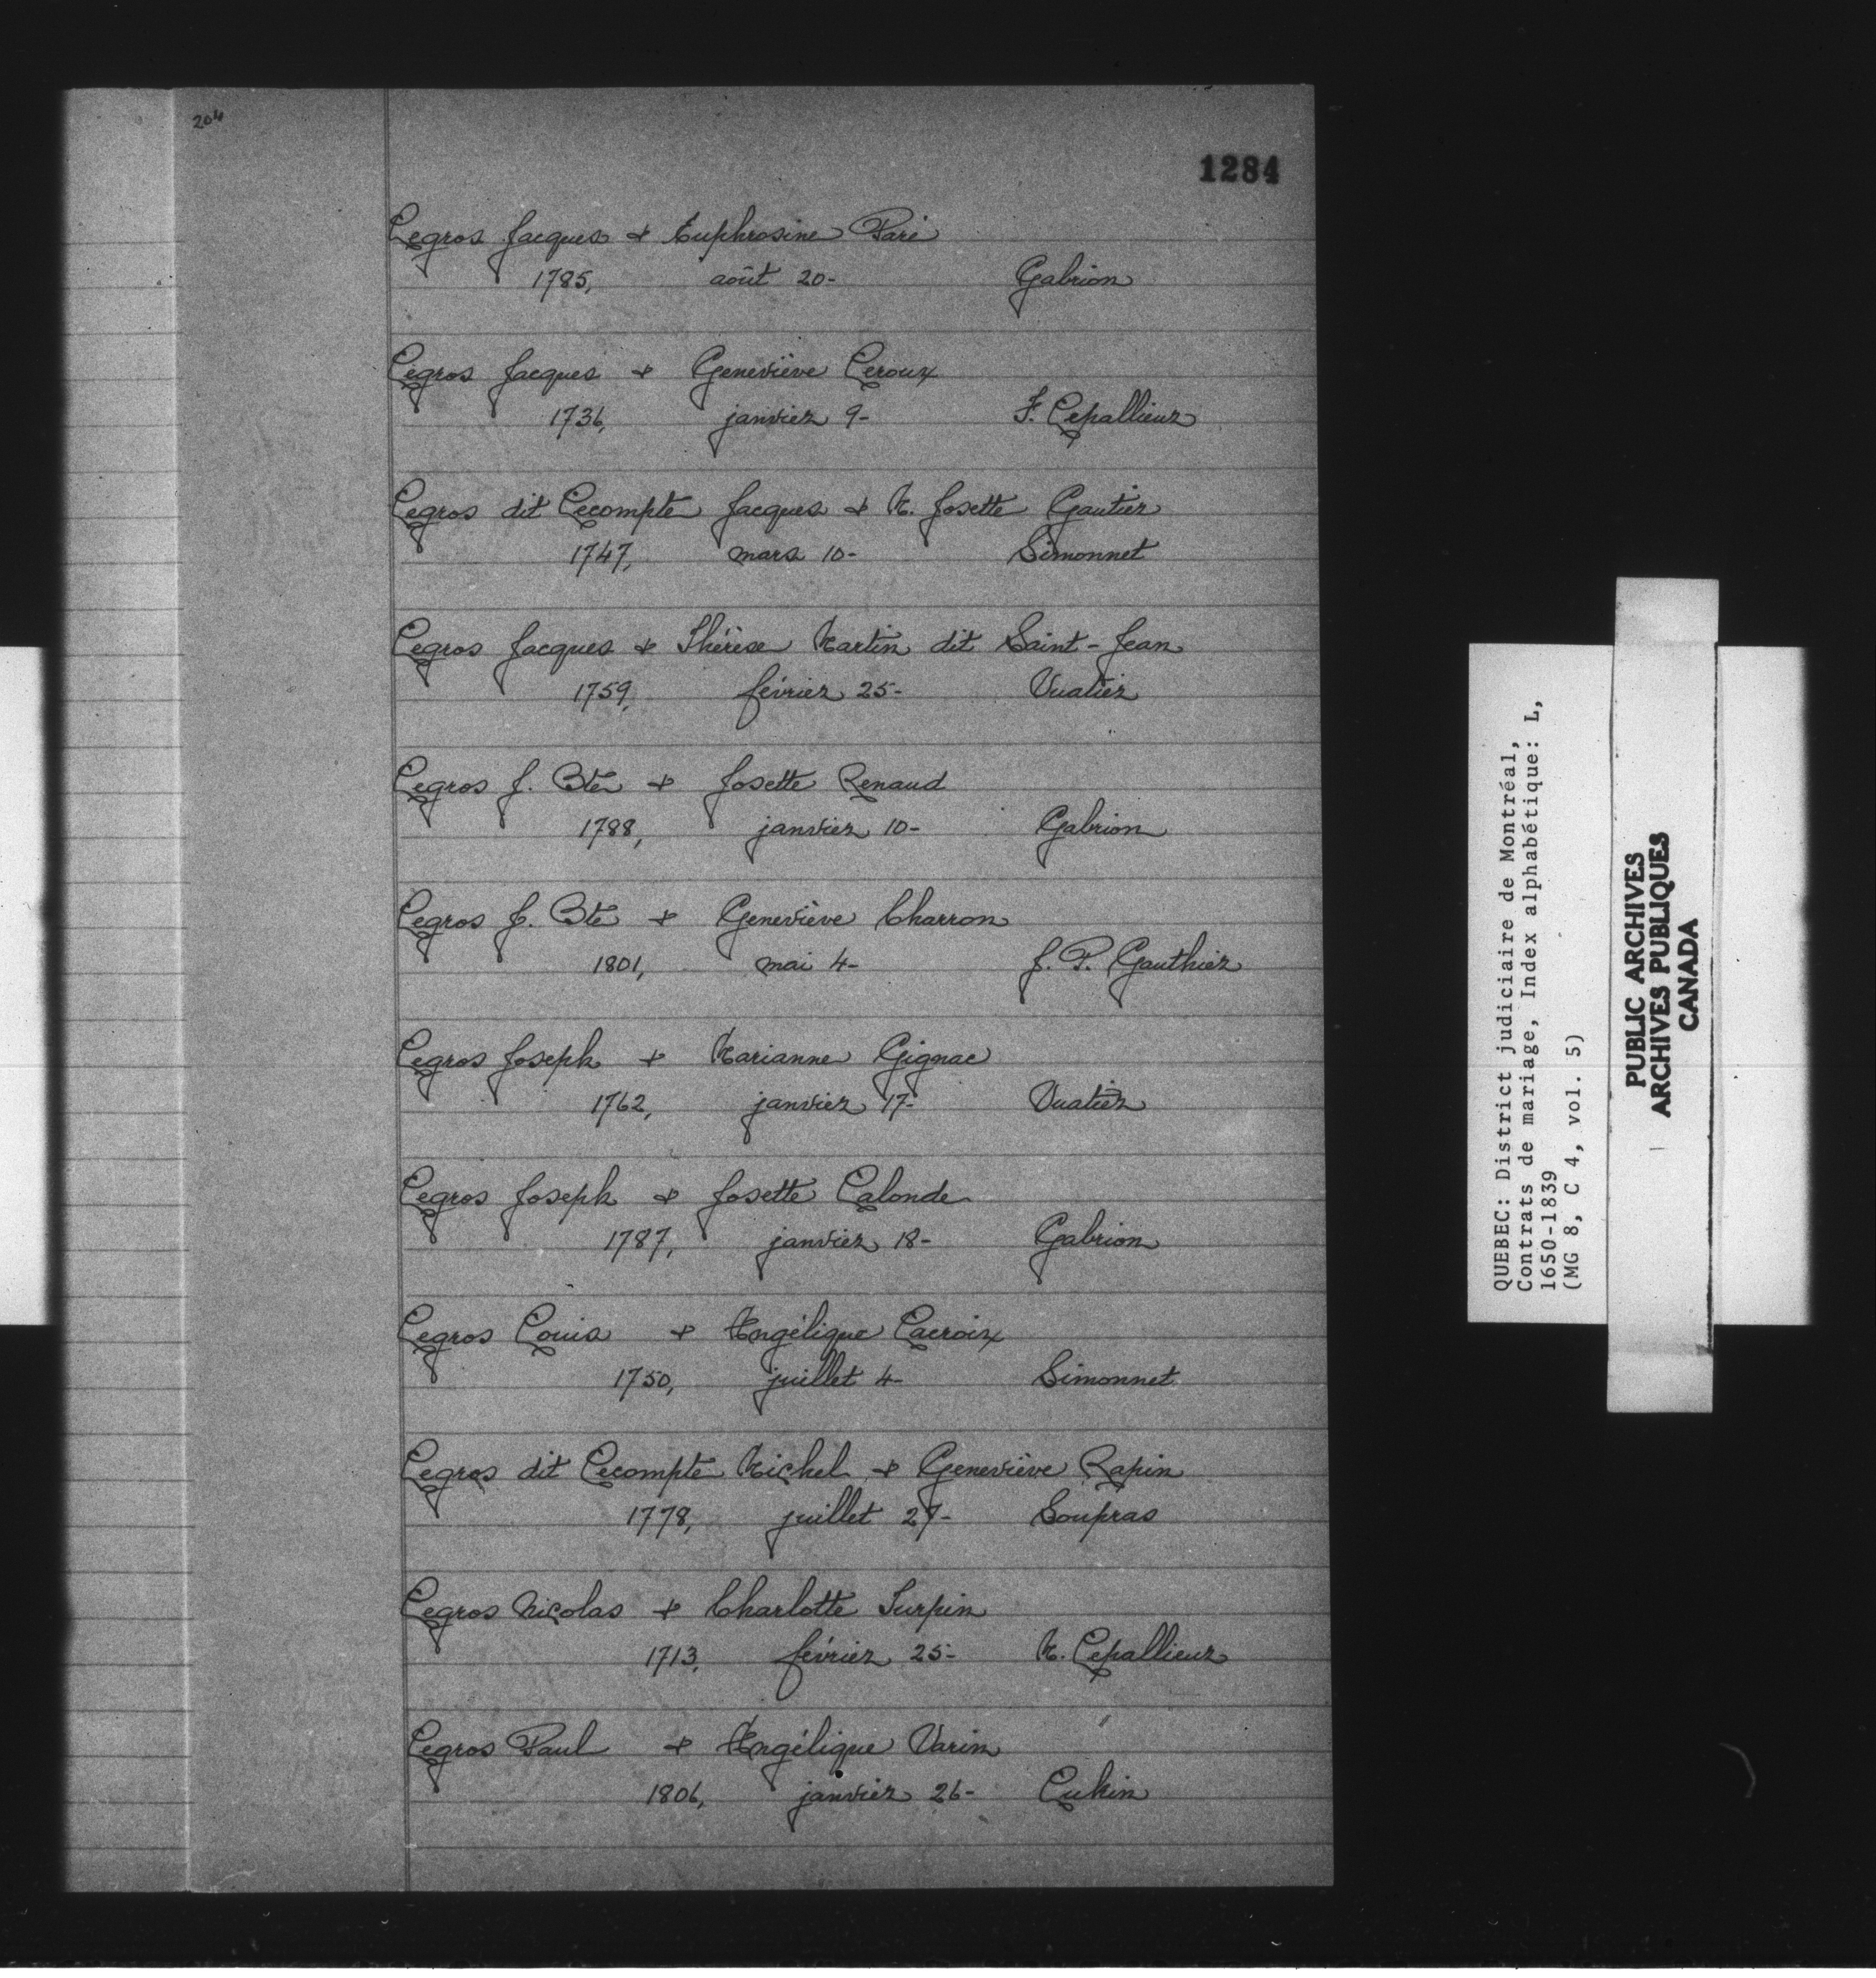 204
1284
Legros Jacques & Euphrosine Paré
1785, août 20- Gabrion
Legros Jacques & Geneviève Leroux
1736, janvier 9- F. Lepallieur
Legros dit Lecompte Jacques & M. Josette Gautier
1747, mars 10- Simonnet
Legros Jacques & Thérèse Martin dit Saint-Jean
1759, février 25- Vuatier
Legros J. Bte & Josette Renaud
1788, janvier 10- Gabrion
Legros J. Bte & Geneviève Charron
1801, mai 4- J. P. Gauthier
Legros Joseph & Marianne Gignac
1762, janvier 17- Vuatier
Legros Joseph & Josette Lalonde
1787, janvier 18- Gabrion
Legros Louis & Angélique Lacroix
1750, juillet 4- Simonnet
Legros dit Lecompte Michel & Geneviève Rapin
1778, juillet 27- Soupras
Legros Nicolas & Charlotte Turpin
1713, février 25- M. Lepallieur
Legros Paul & Angélique Varin
1806, janvier 26- Lukin
QUEBEC: District judiciaire de Montréal,
Contrats de mariage, Index alphabétique: L,
1650-1839
(MG 8, C 4, vol. 5)
PUBLIC ARCHIVES
ARCHIVES PUBLIQUES
CANADA